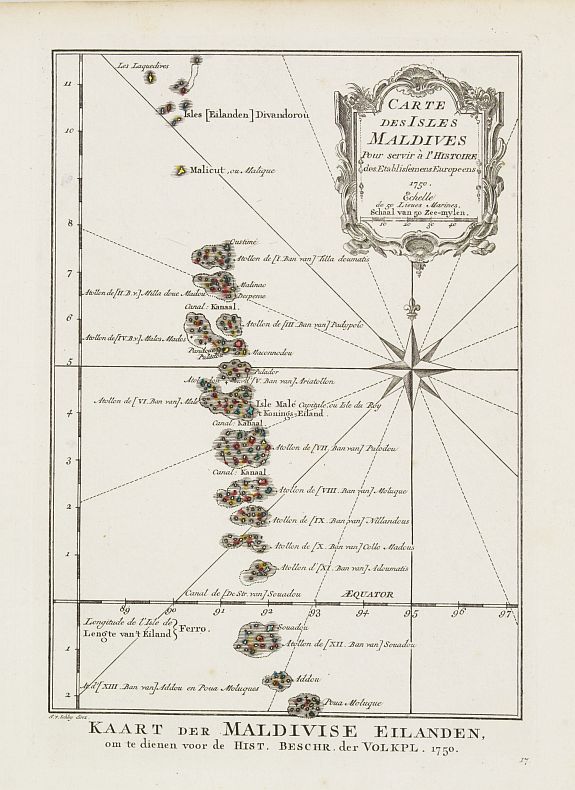 Les Laquedives
Isles [Eilanden] Divandorou
Malicut, ou Malique
CARTE
DES ISLES
MALDIVES
Pour servir à l'HISTOIRE
des Etablissemens Europeens
1750.
Echelle
de 50 Lieues Marines.
Schaal van 50 Zee-mylen.
10 20 30 40
11
10
9
8
7
6
5
4
3
2
1
1
2
Oustimé
Atollon de [I. Ban van] Tilla doumatis
Malmac
Atollon de [II. B.v.] Milla doue Madou
Depeme
Canal: Kanaal
Atollon de [III. Ban van] Padypolo
Atollon de [IV. B.v.] Malos Mados
Maconnodou
Pulador
[V. Ban van] Ariatollon
Atollon de [VI. Ban van] Male
Isle Malé Capitale, ou Isle du Roy
't Konings-Eiland.
Canal: Kanaal
Atollon de [VII. Ban van] Pulodou
Canal: Kanaal
Atollon de [VIII. Ban van] Moluque
Atollon de [IX. Ban van] Nillandous
Atollon de [X. Ban van] Collo Madous
Atollon d'[XI. Ban van] Adoumatis
Canal de [De Str. van] Souadou
ÆQUATOR
89 90 91 92 93 94 95 96 97
Longitude de l'Isle de
Lengte van't Eiland
Ferro.
Souadou
Atollon de [XII. Ban van] Souadou
Addou
At. d'[XIII. Ban van] Addou en Poua Moluques
Poua Moluque
J.v. Schley direx
KAART DER MALDIVISE EILANDEN,
om te dienen voor de HIST. BESCHR. der VOLKPL. 1750.
17